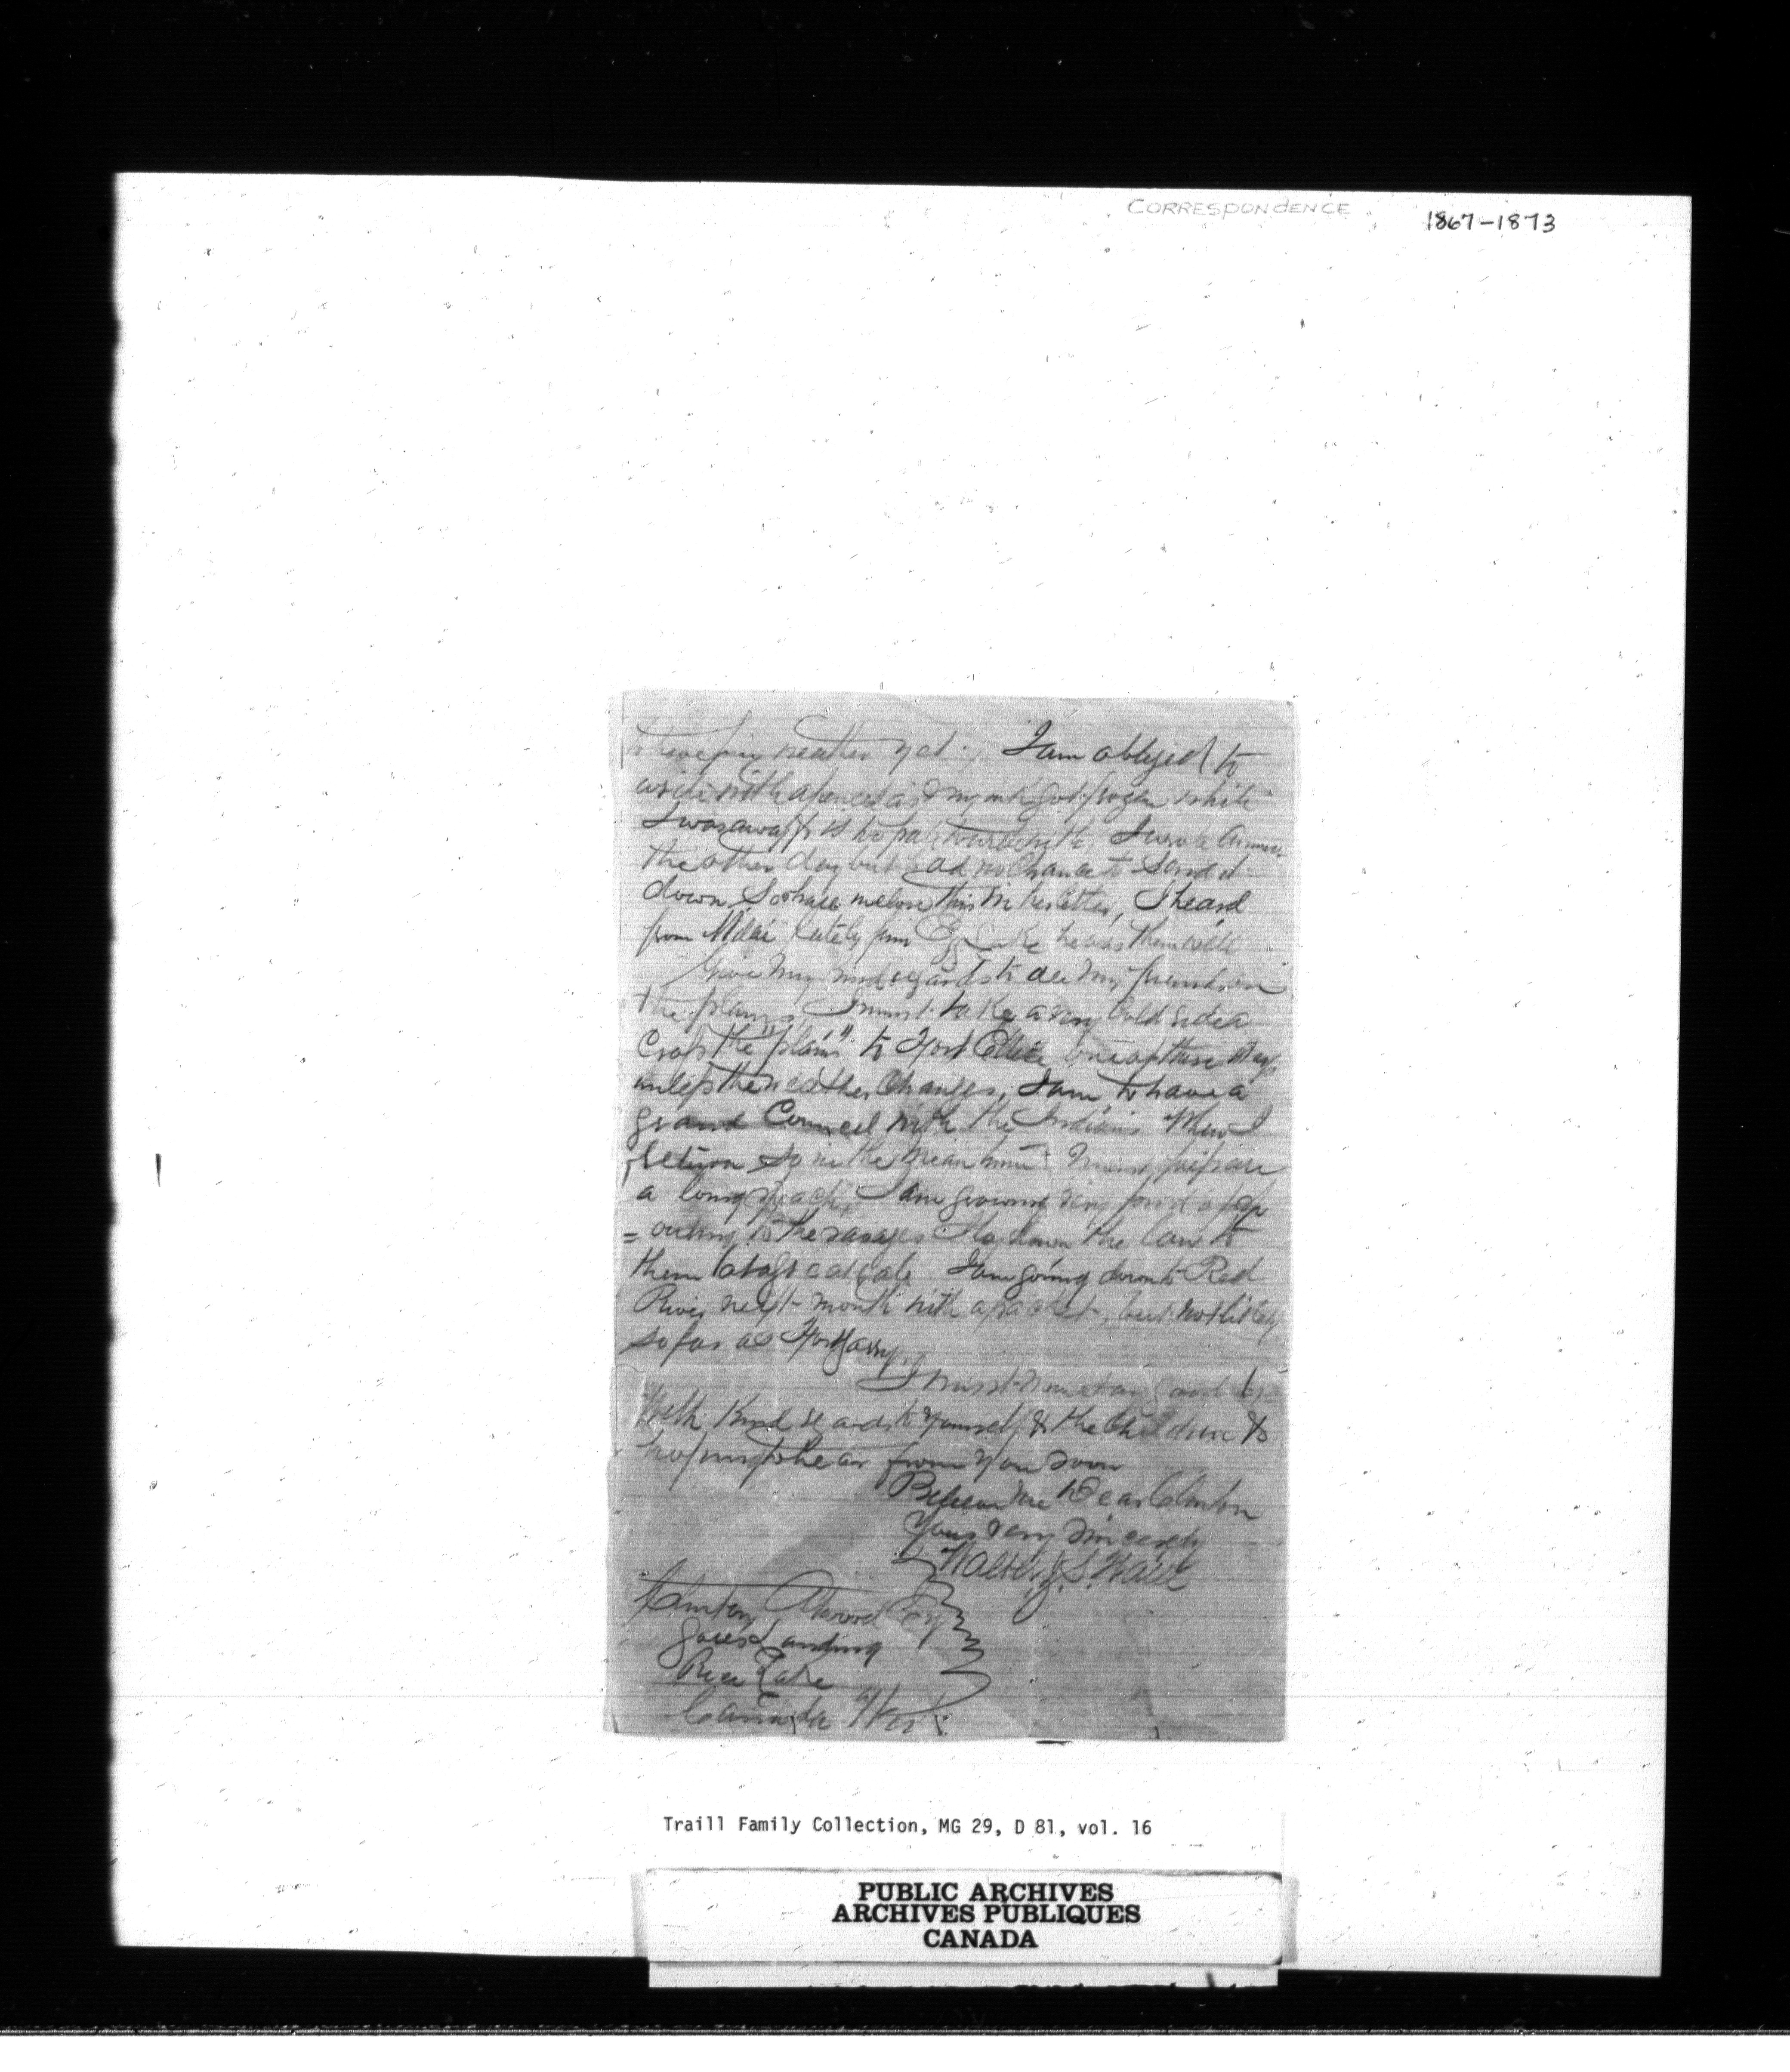 CORRESPONDENCE 1867-1873
to have fine weather yet. I am obliged to
write with a pencil as my ink got frozen while
I was away, I wrote Annie
the other day but had no chance to send it
down So shall inclose this in her letter, I heard
from Willie lately from Egg Lake he was then well
Give my kind regards to all my friends on
the plains, I must take a very cold ride a
cross the "plains" to Fort Ellice one of these days
unless the weather changes, I am to have a
grand Council with the Indians when I
return so in the mean time I must prepare
a long speach, I am growing very fond of sp
= outing to the savages & lay down the law to
them I am going down to Red
River next month with a packet, but not likely
so far as Fort Garry.
I must now say good bye
With kind regards to yourself & the children &
hoping to hear from you soon
Believe me Dear Clinton
Yours very sincerely
Walter J. S. Traill
Clinton Atwood Esq
Gores Landing
Rice Lake
Canada West
Traill Family Collection, MG 29, D 81, vol. 16
PUBLIC ARCHIVES
ARCHIVES PUBLIQUES
CANADA